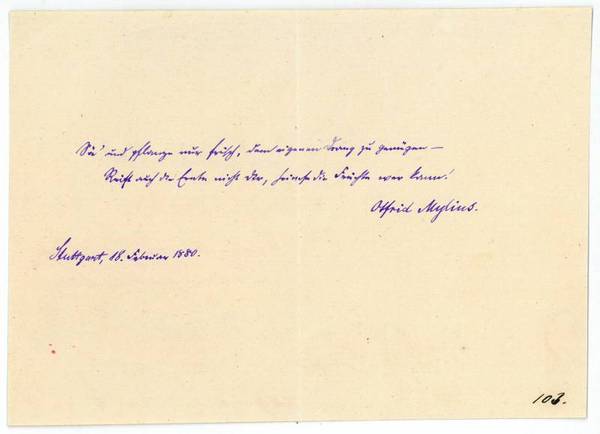 Sä' und pflanze nur frisch, dem eigenen Drang zu genügen —
Reift auch die Ernte nicht Dir, heimse die Früchte wer kann!
Otfrid Mylius.
Stuttgart, 18. Februar 1880.
103.